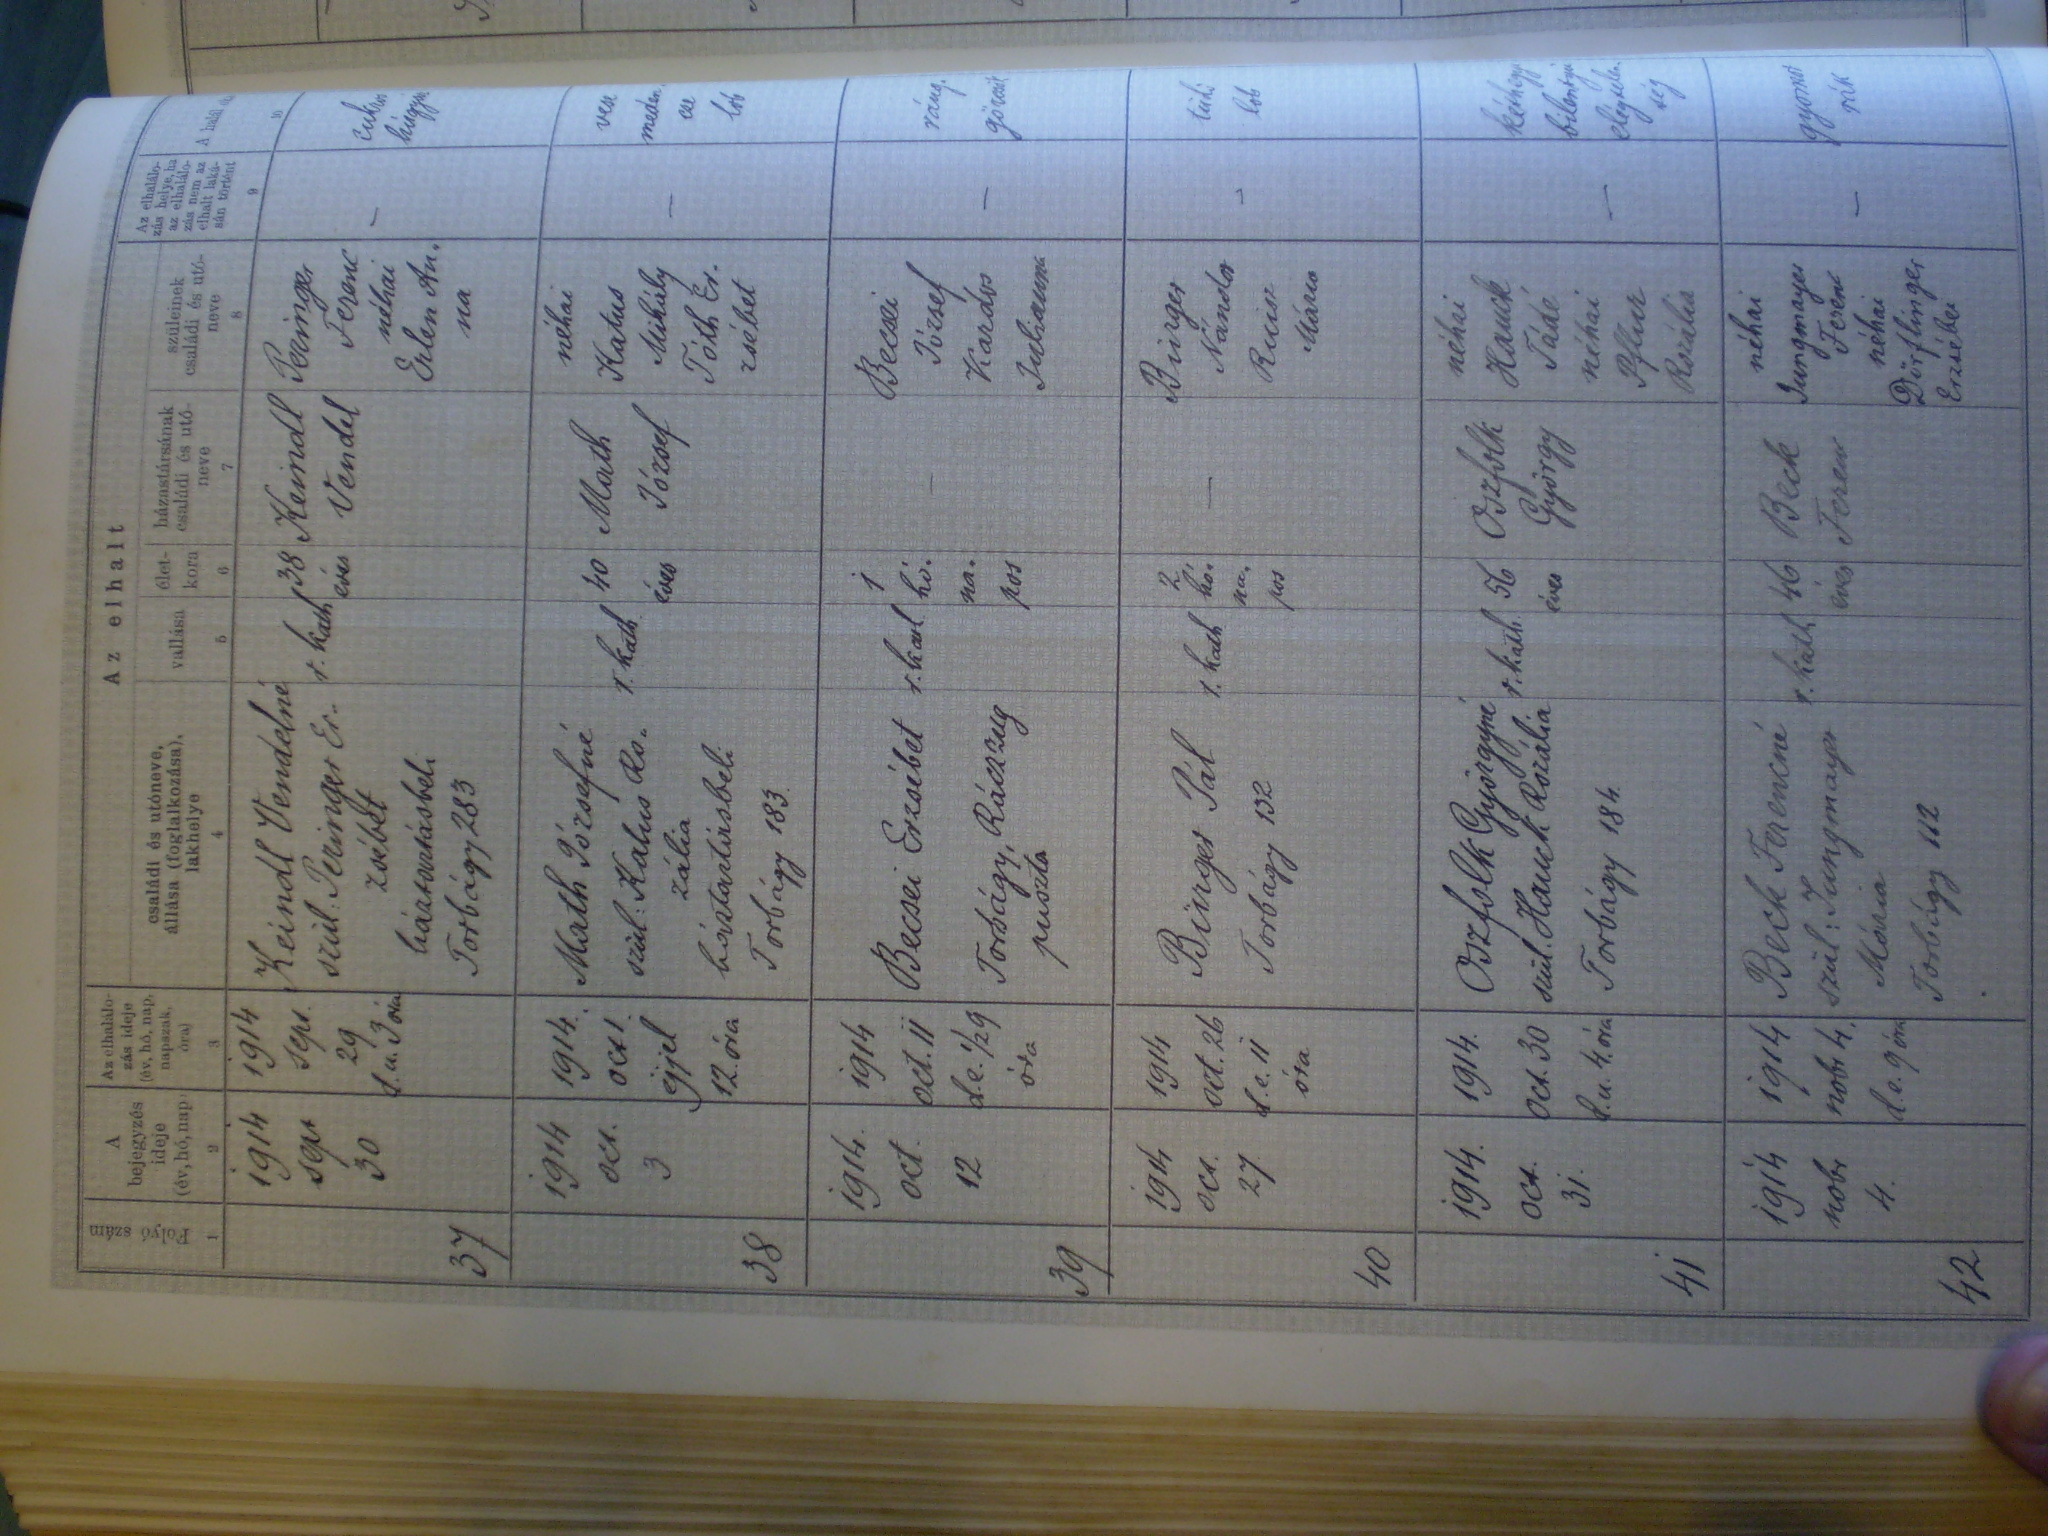 Az elhalt
Folyó szám
A bejegyzés ideje (év, hó, nap)
Az elhalálozás ideje (év, hó, nap, napszak, óra)
családi és utóneve, állása (foglalkozása), lakhelye
vallása
életkora
házastársának családi és utóneve
szüleinek családi és utóneve
Az elhalálozás helye, ha az elhalálozás nem az elhalt lakásán történt
A halál
1 2 3 4 5 6 7 8 9 10
37
1914
sept
30
1914
sept.
29
d.u. 3 óra
Keindl Vendelné
szül: Peringer Er-
zsébet
háztartásbeli
Torbágy 283
r. kath
38
éves
Keindl
Vendel
Peringer
Ferenc
néhai
Erlen An.
na
—
cukor
húgy
38
1914
oct.
3
1914.
oct 1.
éjjel
12. óra
Math Józsefné
szül: Katus Ro.
zália
háztartásbeli
Torbágy 183.
r. kath.
40
éves
Math
József
néhai
Katus
Mihály
Tóth Er.
zsébet
—
vese
meden.
ce
lob
39
1914.
oct.
12
1914
oct. 11
d.e. 1/29
óra
Becsei Erzsébet
Torbágy, Ráczug
puszta
r. kath
1
hó.
na.
pos
—
Becsei
József
Kardos
Julianna
—
ráng.
görcsök
40
1914
oct.
27.
1914
oct. 26
d.e. 11
óra
Binger Pál
Torbágy 132
r. kath
2
hó.
na.
pos
—
Binger
Nándor
Mária
—
tüdő
lob
41
1914.
oct.
31.
1914.
oct. 30
d.u. 4. óra
Oszfolk Györgyné
szül. Hauck Rozália
Torbágy 184.
r. kath.
56
éves
Oszfolk
György
néhai
Hauck
Tádé
néhai
Rozália
—
kéthegyű
billentyű
elégtelen
ség
42
1914
nobr
4.
1914
nobr 4.
d.e. 9 óra
Beck Ferencné
szül: Jungmayer
Mária
Torbágy 112
r. kath
46
éves
Beck
Ferenc
néhai
Jungmayer
Ferenc
néhai
Dörflinger
Erzsébet
—
gyomor
rák